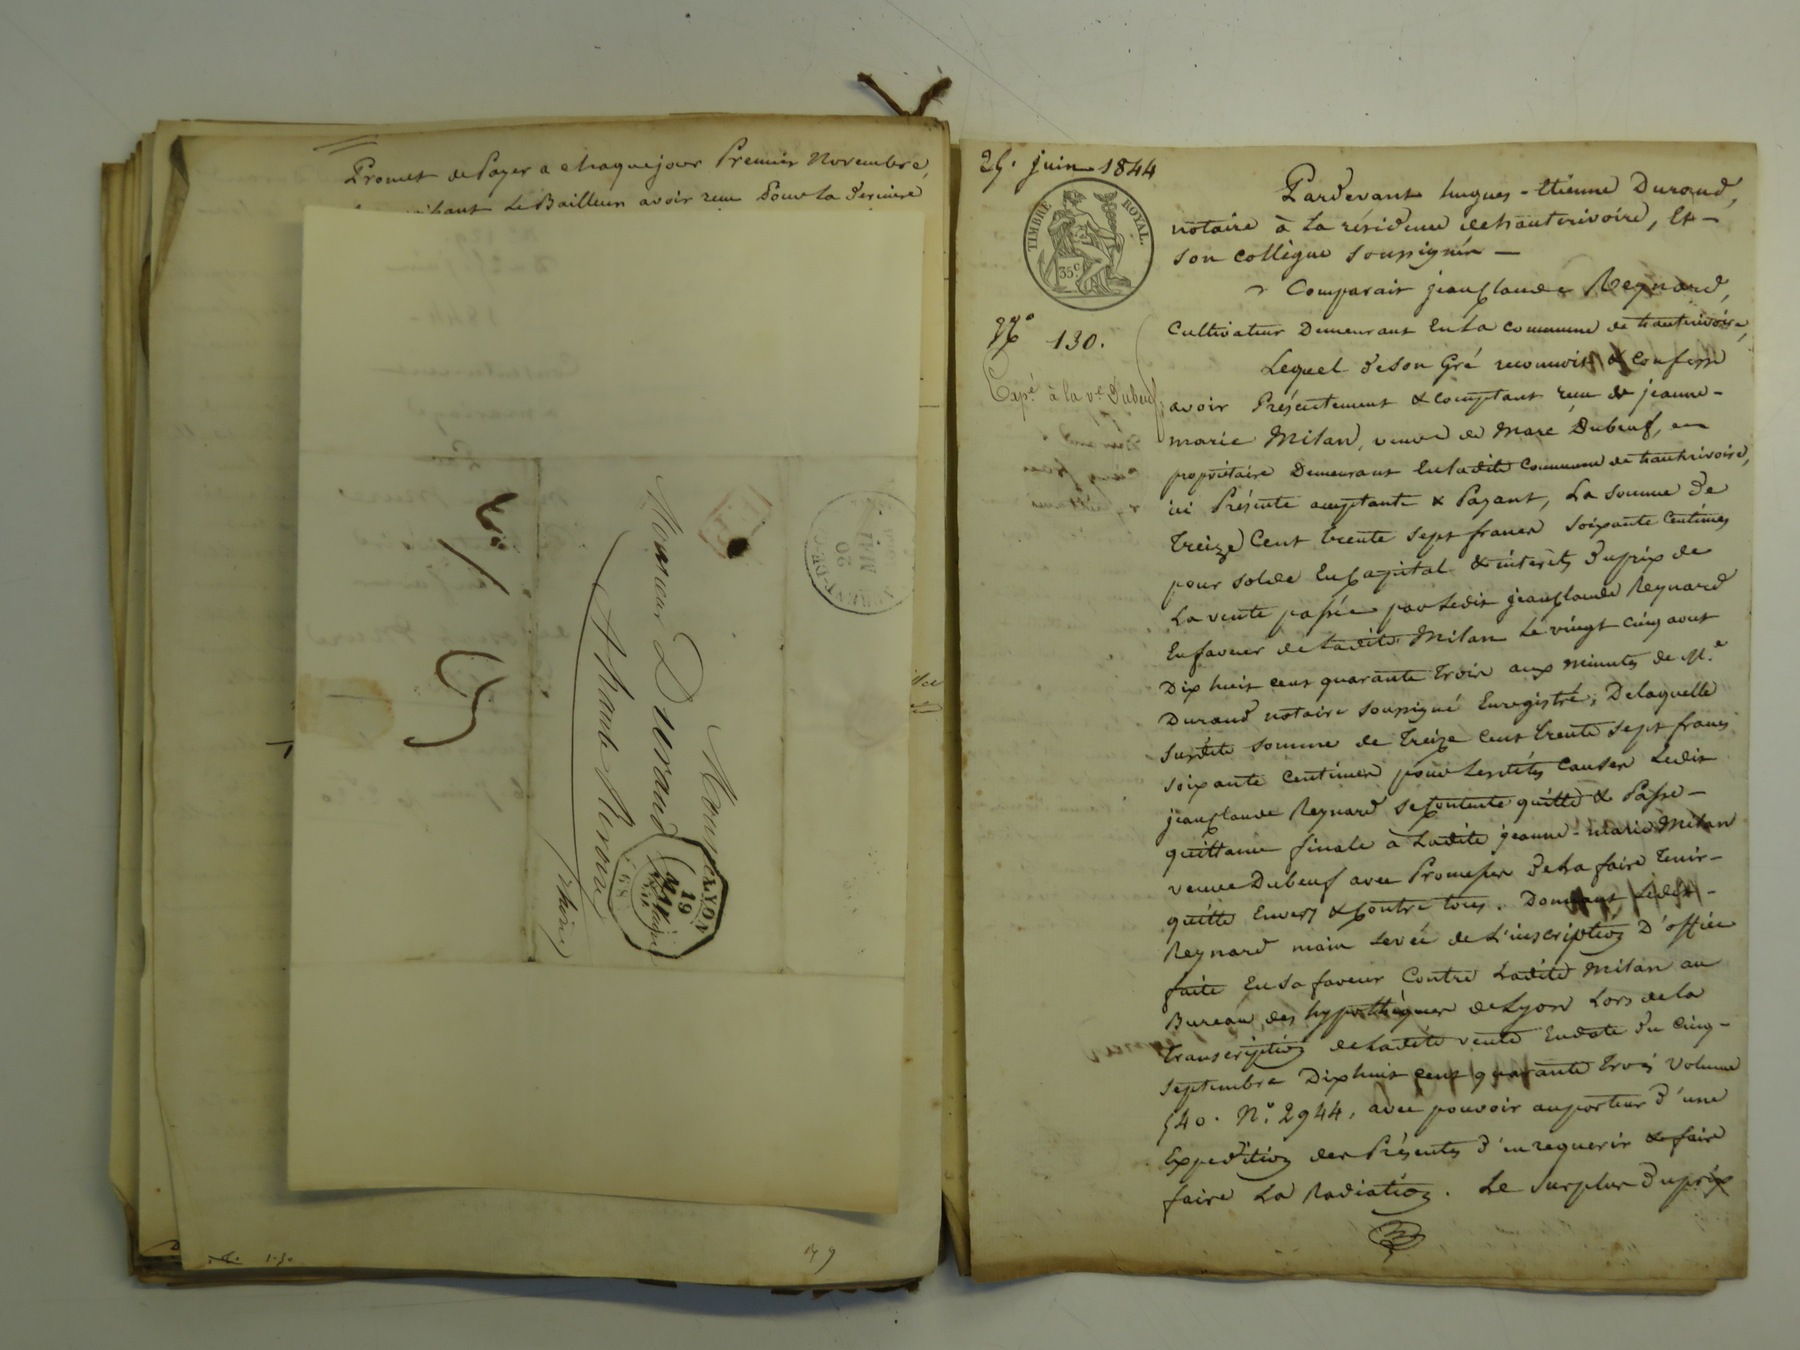 Promet de Payer a chaque jour Premier Novembre,
Le Bailleur avoir recu Pour la derniere
Monsieur
Monsieur Durand
Rhône
LYON
19
MAI
68
20
MAI
149
25. juin 1844
TIMBRE ROYAL.
35c
No 130.
Expé. à la ve. Dubeuf
Pardevant hugues-Etienne Durand,
notaire à La résidence de hauterivoire, Et
son collègue soussignés
Comparait jean Claude Reynard,
Cultivateur Demeurant En La commune de hauterivoire,
Lequel de son Gré reconnoit & confesse
avoir Présentement & comptant recu de jeanne-
marie Milan, veuve de Marc Dubeuf,
propriétaire Demeurant En Ladite Commune de hauterivoire,
ici Présente acceptante & Payant, La somme de
Treize Cent trente sept francs soixante Centimes
pour solde En Capital & intérêts du prix de
La vente passée par Ledit jean Claude Reynard
En faveur de Ladite Milan Le vingt cinq aout
Dix huit cent quarante trois aux minutes de Me.
Durand notaire soussigné Enregistré; De laquelle
susdite somme de Treize cent trente sept francs
soixante centimes pour Lesdites causes Ledit
jean Claude Reynard se Contente quitte & Passe
quittance finale à Ladite jeanne-marie Milan
veuve Dubeuf avec Promesse de La faire Tenir
quitte Envers & Contre tous. Donnant Ledit
Reynard main Levée de L'inscription D'office
faite En sa faveur Contre Ladite Milan au
Bureau des hypothèques de Lyon Lors de La
transcription de Ladite vente En date du Cinq
septembre Dix huit cent quarante Trois Volume
540. No. 2944, avec pouvoir au porteur d'une
Expedition des Présentes d'en requerir & faire
faire La Radiation. Le surplus du prix